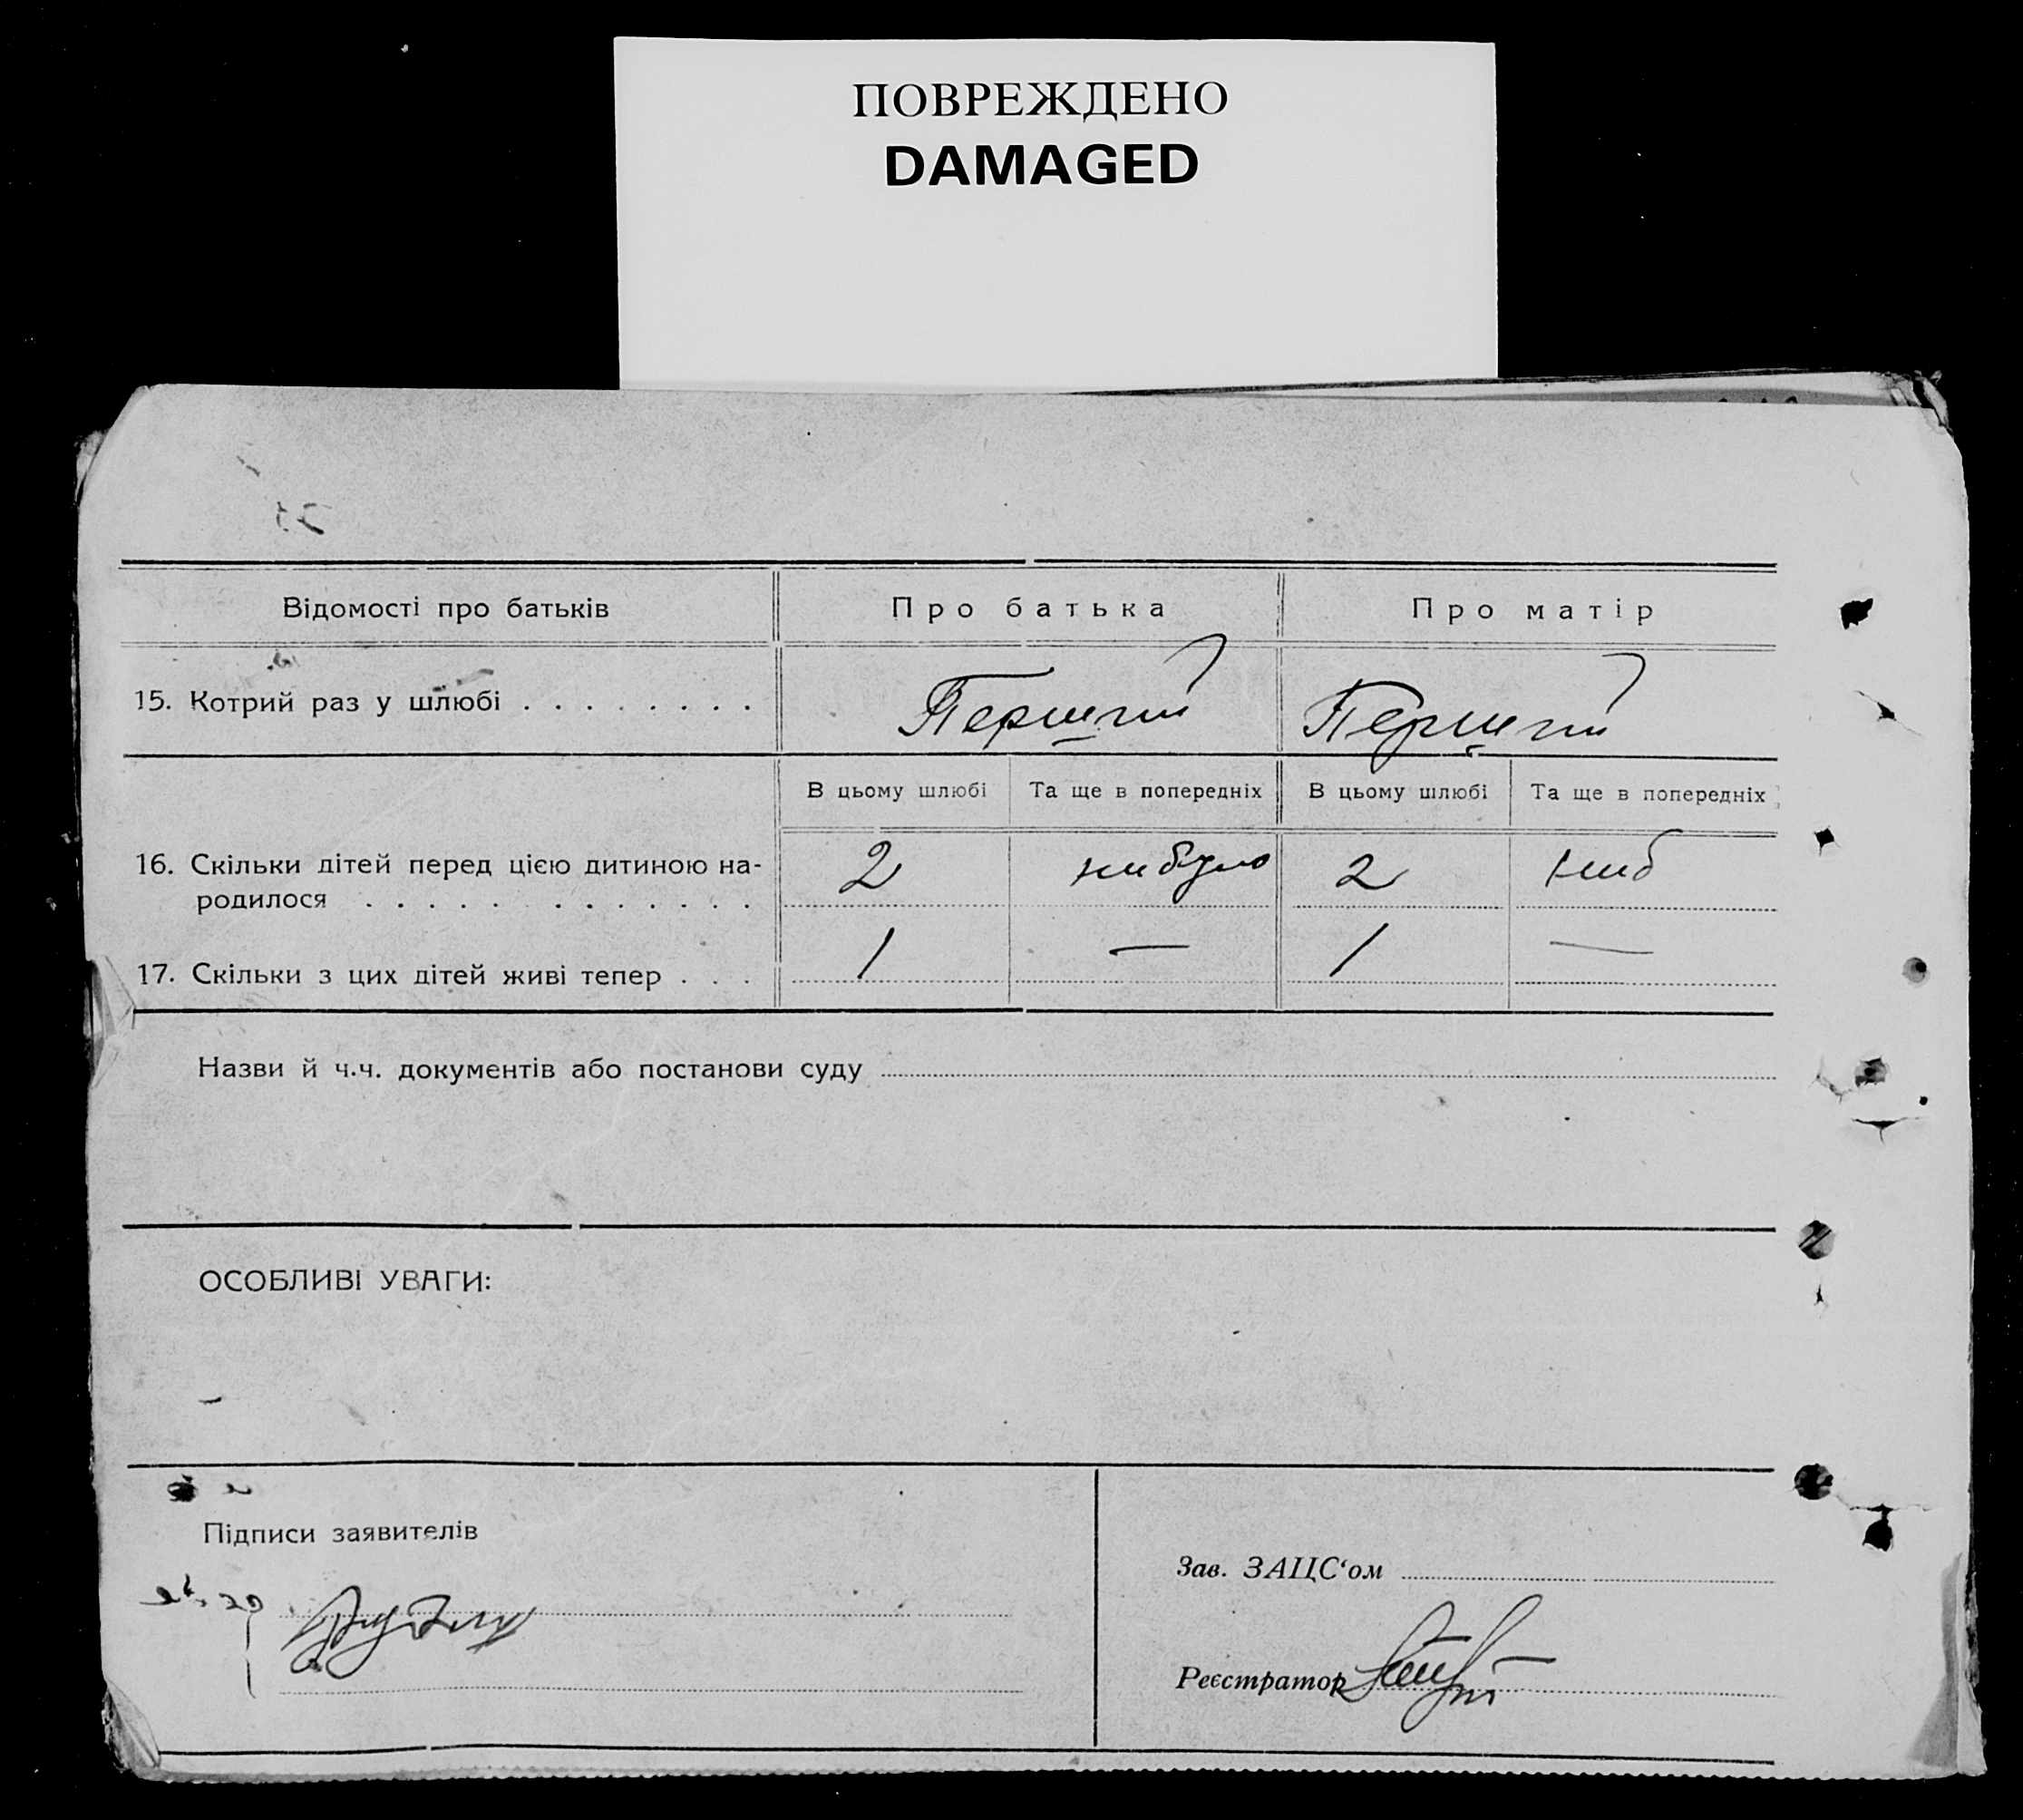 ПОВРЕЖДЕНО
DAMAGED
Відомості про батьків Про батька Про матір
15. Котрий раз у шлюбі . . . . . . . . Перший Перший
В цьому шлюбі Та ще в попередніх В цьому шлюбі Та ще в попередніх
16. Скільки дітей перед цією дитиною на-
родилося . . . . . . . . . . . . . 2 2
17. Скільки з цих дітей живі тепер . . . 1 — 1 —
Назви й ч.ч. документів або постанови суду
ОСОБЛИВІ УВАГИ:
Підписи заявителів
Зав. ЗАЦС‘ом
Реєстратор